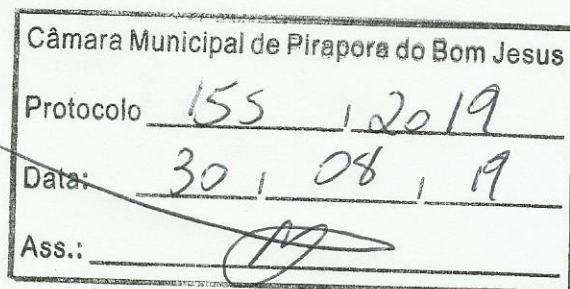 Câmara Municipal de Pirapora do Bom Jesus
Protocolo 155 / 2019
Data: 30 / 08 / 19
Ass.: